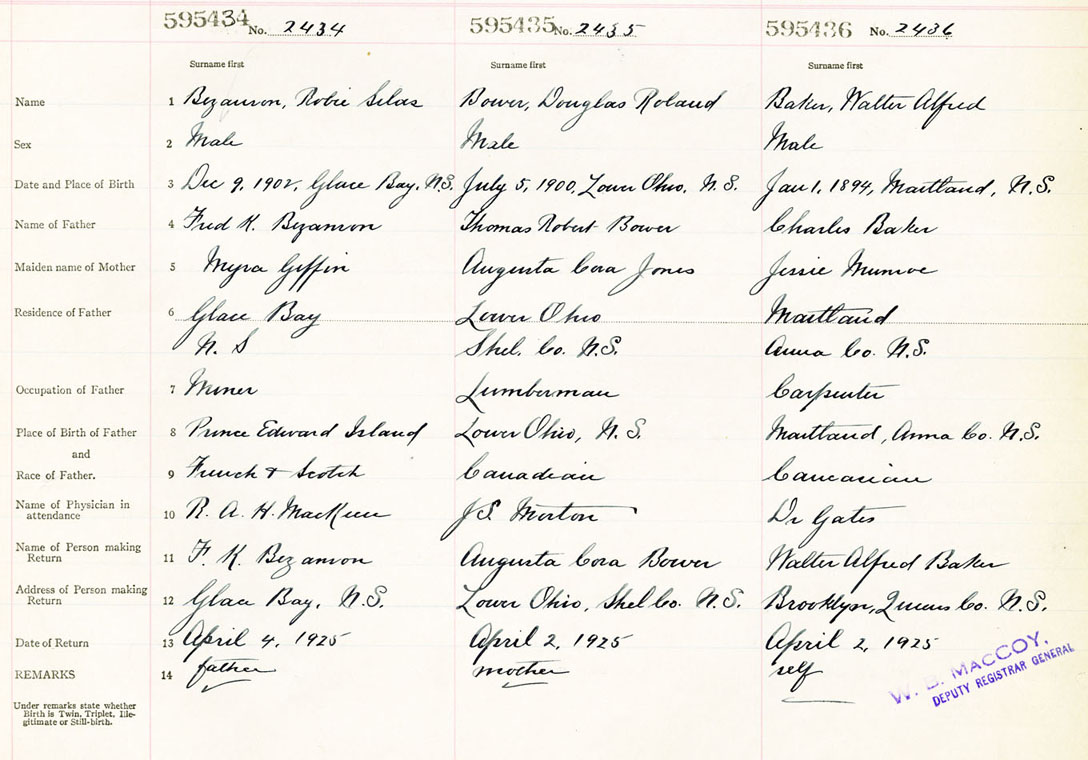 595434 No. 2434 595435 No. 2435 595436 No. 2436
Surname first Surname first Surname first
Name 1 Bezanson, Robie Silas Bower, Douglas Roland Baker, Walter Alfred
Sex 2 Male Male Male
Date and Place of Birth 3 Dec 9, 1902, Glace Bay, N.S. July 5, 1900, Lower Ohio, N.S. Jan 1, 1894, Maitland, N.S.
Name of Father 4 Fred K. Bezanson Thomas Robert Bower Charles Baker
Maiden name of Mother 5 Myra Giffin Augusta Cora Jones Jessie Munroe
Residence of Father 6 Glace Bay Lower Ohio Maitland
N. S Shel. Co. N.S. Anna Co. N.S.
Occupation of Father 7 Miner Lumberman Carpenter
Place of Birth of Father 8 Prince Edward Island Lower Ohio, N.S. Maitland, Anna Co. N.S.
and
Race of Father. 9 French & Scotch Canadian Caucasian
Name of Physician in
attendance 10 R. A. H. MacKeen J.S. Morton Dr Gates
Name of Person making
Return 11 F. K. Bezanson Augusta Cora Bower Walter Alfred Baker
Address of Person making
Return 12 Glace Bay, N.S. Lower Ohio, Shel Co. N.S. Brooklyn, Queens Co. N.S.
Date of Return 13 April 4, 1925 April 2, 1925 April 2, 1925
REMARKS 14 father mother self
W. B. MACCOY,
DEPUTY REGISTRAR GENERAL
Under remarks state whether
Birth is Twin, Triplet, Ille-
gitimate or Still-birth.